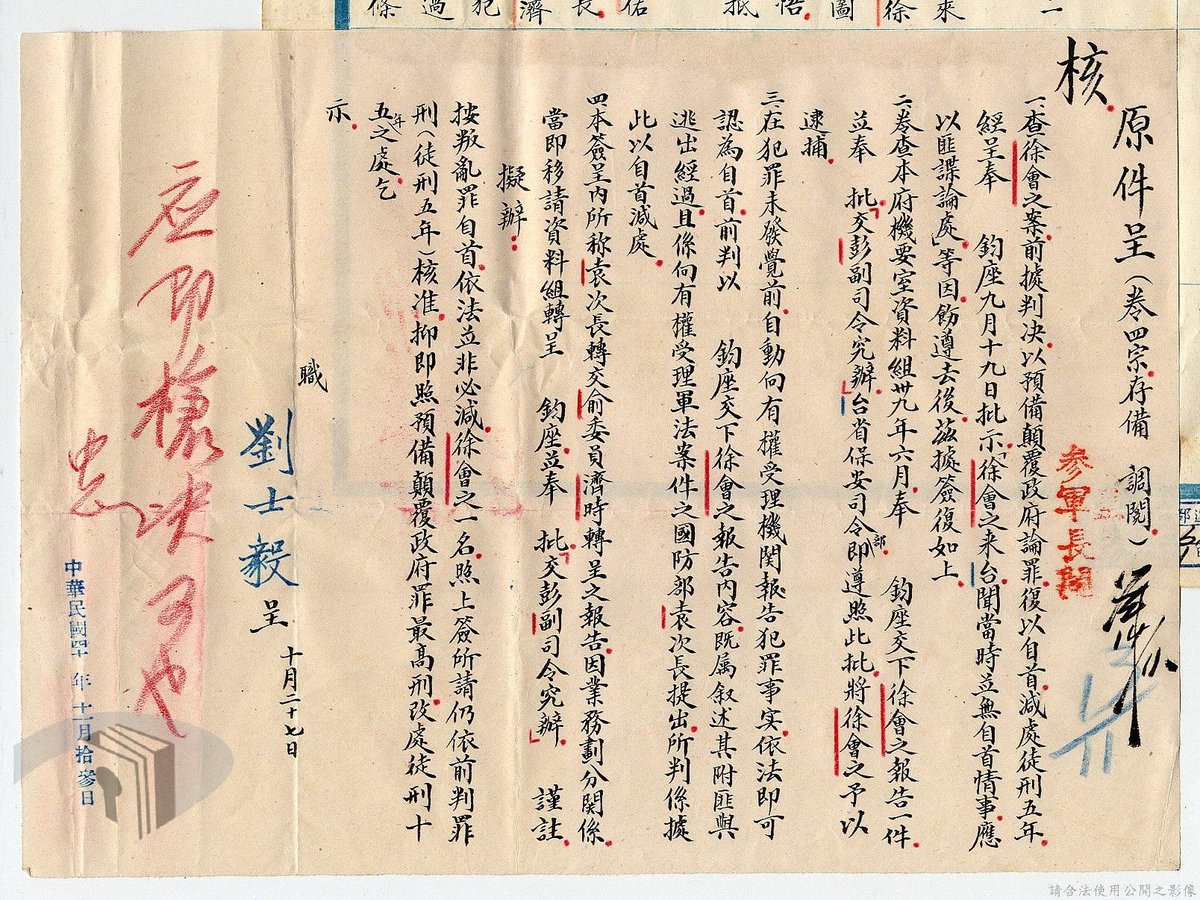 核
原件呈（卷四宗存備 調閱）
參軍長閱
一、查徐會之案、前據判決、以預備顛覆政府論罪、復以自首減處徒刑五年、
經呈奉 鈞座九月十九日批示、「徐會之來台、聞當時並無自首情事、應
以匪諜論處」等因、飭遵去後、茲據簽復如上、
二、卷查本府機要室資料組卅九年六月奉 鈞座交下徐會之報告一件、
並奉 批「交彭副司令究辦」台省保安司令部即遵照此批、將徐會之予以
逮捕、
三、在犯罪未發覺前、自動向有權受理機關報告犯罪事實、依法即可
認為自首、前判以 鈞座交下徐會之報告內容、既屬叙述其附匪與
逃出經過、且係向有權受理軍法案件之國防部袁次長提出、所判係據
此以自首減處、
四、本簽呈內所称袁次長轉交俞委員濟時轉呈之報告、因業務劃分關係、
當即移請資料組轉呈 鈞座、並奉 批「交彭副司令究辦」、 謹註
擬辦：
按叛亂罪自首、依法並非必減、徐會之一名、照上簽所請仍依前判罪
刑（徒刑五年）核准、抑即照預備顛覆政府罪最高刑、改處徒刑十
五年之處、乞
示、
職
劉士毅 呈 十月二十七日
应即槍决可也
中華民國四十年十一月拾參日
請合法使用公開之影像